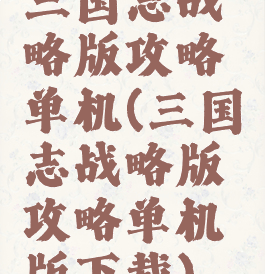 三国志战
略版攻略
单机(三国
志战略版
攻略单机
版下载)